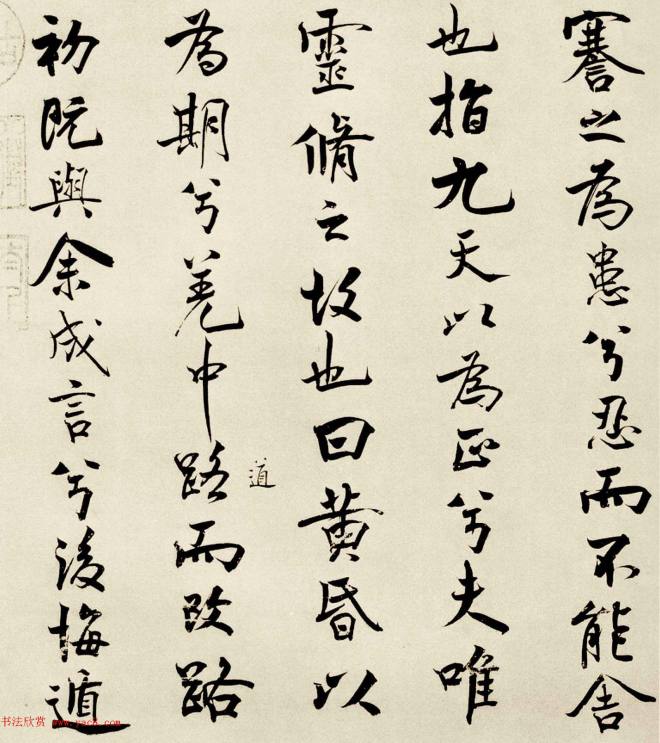 謇之為患兮忍而不能舍
也指九天以為正兮夫唯
靈脩之故也曰黃昏以
為期兮羌中路而改路
道
初既與余成言兮後悔遁
书法欣赏